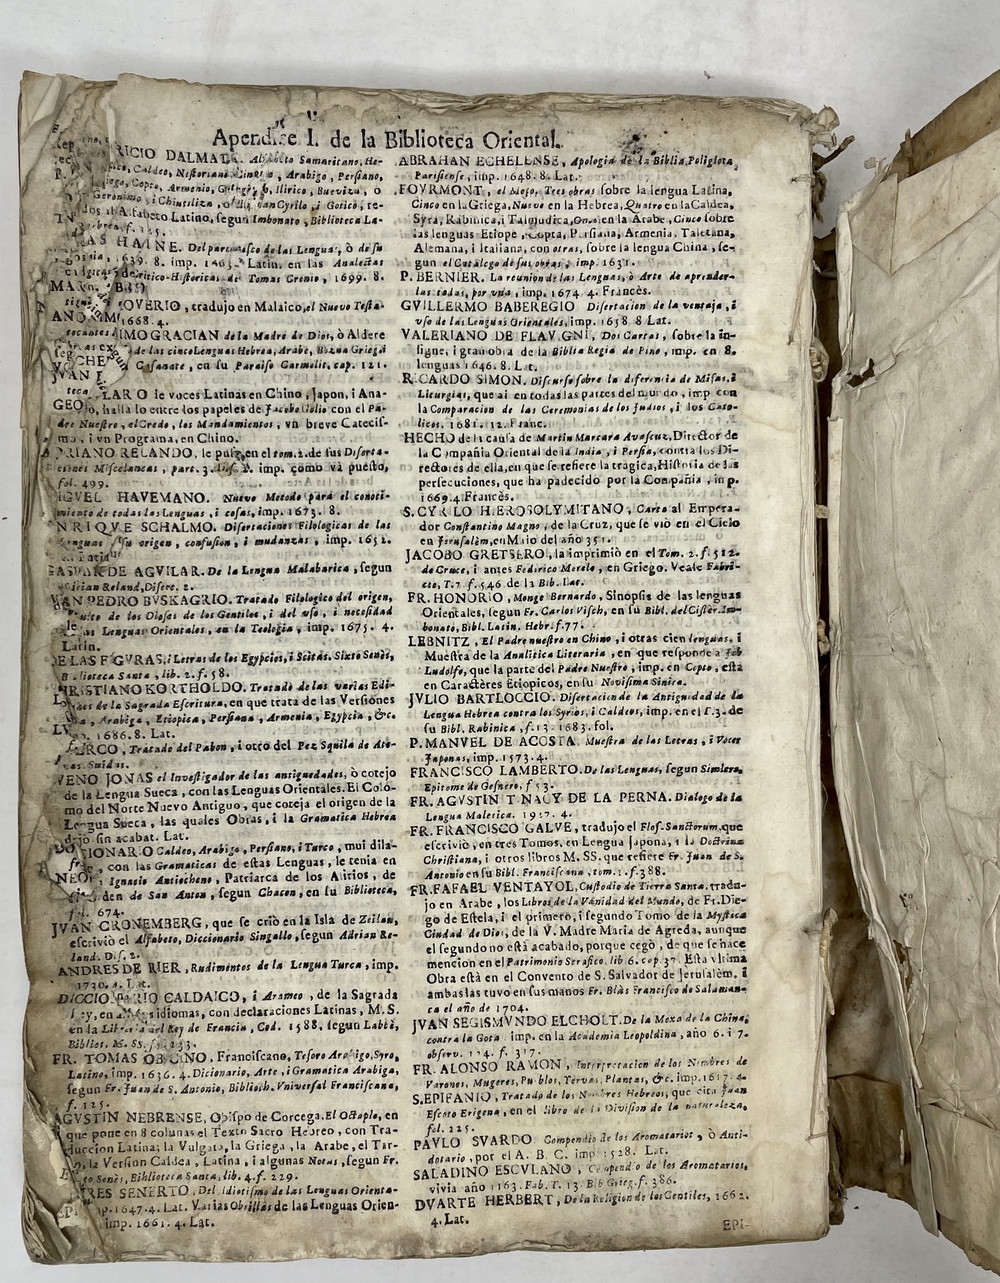 Apendice I. de la Biblioteca Oriental.
RICIO DALMATA. Alfabeto Samaritano, He-
Caldeo, Nestoriano, Arabigo, Persiano,
Copto, Armenio, Ilirico, Bueviza, ò
Geronimo, i Chiutiliza, Cyrilo, i Gotico, re-
dos al Alfabeto Latino, segun Imbonato, Biblioteca La-
f. 125.
AS HAINE. Del parentasco de las Lenguas, ò de su
1639. 8. imp. Latin. en las Analectas
Critico-Historicas de Tomas Crenio, 1699. 8.
OVERIO, tradujo en Malaico, el Nuevo Testa-
1668. 4.
IMO GRACIAN de la Madre de Dios, ò Aldere
de las cinco Lenguas Hebrea, Arabe, Griega
Casanate, en su Paraiso Carmelit. cap. 121.
LARO le voces Latinas en Chino, Japon, i Ana-
halló entre los papeles de Jacobo Golio con el Pa-
dre Nuestro, el Credo, los Mandamientos, vn breve Catecis-
mo, i vn Programa, en Chino.
RIANO RELANDO, le puso en el tom. 2. de sus Diserta-
ciones Miscelaneas, part. 3. imp. como và puesto,
fol. 499.
IGVEL HAVEMANO. Nuevo Metodo para el conoci-
miento de todas las Lenguas, i cosas, imp. 1673. 8.
NRIQVE SCHALMO. Disertaciones Filologicas de las
Lenguas, su origen, confusion, i mudanzas, imp. 1652.
GASPAR DE AGVILAR. De la Lengua Malabarica, segun
Adrian Reland, Disere. 2.
VAN PEDRO BVSKAGRIO. Tratado Filologico del origen,
Culto de los Dioses de los Gentiles, i del vso, i necesidad
Lenguas Orientales, en la Teologia, imp. 1675. 4.
Latin.
DE LAS FIGVRAS, i Letras de los Egypcios, i Scitas. Sixto Senès,
Biblioteca Santa, lib. 2. f. 58.
HRISTIANO KORTHOLDO. Tratado de las varias Edi-
ciones de la Sagrada Escritura, en que trata de las Versiones
Arabiga, Etiopica, Persiana, Armenia, Egypcia, &c.
1686. 8. Lat.
Tratado del Pabon, i otro del Pez Squila de Ate-
Suidas.
VENO JONAS el Investigador de las antiguedades, ò cotejo
de la Lengua Sueca, con las Lenguas Orientales. El Colo-
mo del Norte Nuevo Antiguo, que coteja el origen de la
Lengua Sueca, las quales Obras, i la Gramatica Hebrea
dejó sin acabar. Lat.
DICCIONARIO Caldeo, Arabigo, Persiano, i Turco, mui dila-
con las Gramaticas de estas Lenguas, le tenia en
Ignacio Antiocheno, Patriarca de los Asirios, de
den de San Anton, segun Chacon, en su Biblioteca,
fol. 674.
JVAN CRONEMBERG, que se criò en la Isla de Zeilan,
escriviò el Alfabeto, Diccionario Singallo, segun Adrian Re-
land. Dis. 2.
ANDRES DE RIER, Rudimentos de la Lengua Turca, imp.
1730. 4. Lat.
DICCIONARIO CALDAICO, i Arameo, de la Sagrada
Ley, en idiomas, con declaraciones Latinas, M.S.
en la Libreria del Rey de Francia, Cod. 1588. segun Labè,
Bibliot. M. SS. f. 233.
FR. TOMAS OBICINO, Franciscano, Tesoro Arabigo, Syro,
Latino, imp. 1636. 4. Dicionario, Arte, i Gramatica Arabiga,
segun Fr. Juan de S. Antonio, Biblioth. Vniversal Franciscana,
f. 125.
AGVSTIN NEBRENSE, Obispo de Corcega. El Octaplo, en
que pone en 8 columnas el Texto Sacro Hebreo, con Tra-
duccion Latina; la Vulgata, la Griega, la Arabe, el Tar-
la Version Caldea, Latina, i algunas Notas, segun Fr.
Senès, Biblioteca Santa, lib. 4. f. 229.
RES SENERTO, Del Idiotismo de las Lenguas Orienta-
1647. 4. Lat. Varias Obrillas de las Lenguas Orien-
imp. 1661. 4. Lat.
ABRAHAN ECHELENSE, Apologia de la Biblia Poliglota,
Parisiense, imp. 1648. 8. Lat.
FOVRMONT, el Mozo, Tres obras sobre la lengua Latina,
Cinco en la Griega, Nueve en la Hebrea, Quatro en la Caldea,
Syra, Rabinica, i Talmudica, Once en la Arabe, Cinco sobre
las lenguas Etiope, Copta, Persiana, Armenia, Tartana,
Alemana, i Italiana, con otras, sobre la lengua China, se-
gun el Catalogo de sus obras, imp. 1631.
P. BERNIER. La reunion de las Lenguas, ò Arte de aprender-
las todas, por vna, imp. 1674. 4. Francès.
GVILLERMO BABEREGIO Disertacion de la ventaja, i
vso de las Lenguas Orientales, imp. 1658. 8 Lat.
VALERIANO DE FLAVIGNI, Dos Cartas, sobre la in-
signe, i gran obra de la Biblia Regia de Pino, imp. en 8.
lenguas 1646. 8. Lat.
RICARDO SIMON. Discurso sobre la diferencia de Misas, i
Liturgias, que ai en todas las partes del mundo, imp con
la Comparacion de las Ceremonias de los Judios, i los Cato-
licos, 1681. 12. Franc.
HECHO de la causa de Martin Marcara Avascuz, Director de
la Compañia Oriental de la India, i Persia, contra los Di-
rectores de ella, en que se refiere la tragica Historia de las
persecuciones, que ha padecido por la Compañia, imp.
1669. 4. Francès.
S. CYRILO HIEROSOLYMITANO, Carta al Empera-
dor Constantino Magno, de la Cruz, que se viò en el Cielo
en Jerusalèm, en Maio del año 351.
JACOBO GRETSERO, la imprimiò en el Tom. 2. f. 512.
de Cruce, i antes Federico Morelo, en Griego. Veale Fabri-
cio, T. 7. f. 546 de la Bib. Lat.
FR. HONORIO, Monge Bernardo, Sinopsis de las lenguas
Orientales, segun Fr. Carlos Visch, en su Bibl. del Cister. Im-
bonato, Bibl. Latin. Hebr. f. 77.
LEBNITZ, El Padre nuestro en Chino, i otras cien lenguas, i
Muestra de la Analitica Literaria, en que responde a Job
Ludolfo, que la parte del Padre Nuestro, imp. en Copto, està
en Caractères Etiopicos, en su Novisima Sinica.
JVLIO BARTLOCCIO. Disertacion de la Antiguedad de la
Lengua Hebrea contra los Syrios, i Caldeos, imp. en el T. 3. de
su Bibl. Rabinica, f. 13. 1683. fol.
P. MANVEL DE ACOSTA. Muestra de las Letras, i Voces
Japonas, imp. 1573. 4.
FRANCISCO LAMBERTO. De las Lenguas, segun Simlero,
Epitome de Gesnero, f 53.
FR. AGVSTIN T NACY DE LA PERNA. Dialogo de la
Lengua Malerica. 1927. 4.
FR. FRANCISCO GALVE, tradujo el Flos Sanctorum, que
escriviò, en tres Tomos, en Lengua Japona, i la Doctrina
Christiana, i otros libros M. SS. que refiere Fr. Juan de S.
Antonio en su Bibl. Franciscana, tom. 1. f. 388.
FR. RAFAEL VENTAYOL, Custodio de Tierra Santa, tradu-
jo en Arabe, los Libros de la Vanidad del Mundo, de Fr. Die-
go de Estela, i el primero, i segundo Tomo de la Mystica
Ciudad de Dios, de la V. Madre Maria de Agreda, aunque
el segundo no està acabado, porque cegò, de que se hace
mencion en el Patrimonio Serafico, lib 6. cap. 37. Esta vltima
Obra està en el Convento de S. Salvador de Jerusalèm, i
ambas las tuvo en sus manos Fr. Blàs Francisco de Salaman-
ca el año de 1704.
JVAN SEGISMVNDO ELCHOLT. De la Moxa de la China,
contra la Gota. imp. en la Academia Leopoldina, año 6. i 7.
observ. 114. f. 317.
FR. ALONSO RAMON, Interpretacion de los Nombres de
Varones, Mugeres, Pueblos, Yervas, Plantas, &c. imp. 1617. 4.
S. EPIFANIO, Tratado de los Nombres Hebreos, que cita Juan
Escoto Erigena, en el libro de la Division de la naturaleza,
fol. 225.
PAVLO SVARDO Compendio de los Aromatarios, ò Anti-
dotario, por el A. B. C. imp 1528. Lat.
SALADINO ESCVLANO, Compendio de los Aromatarios,
vivia año 1163. Fab. T. 13. Bib Grieg. f. 386.
DVARTE HERBERT, De la Religion de los Gentiles, 1662.
4. Lat.
EPI-